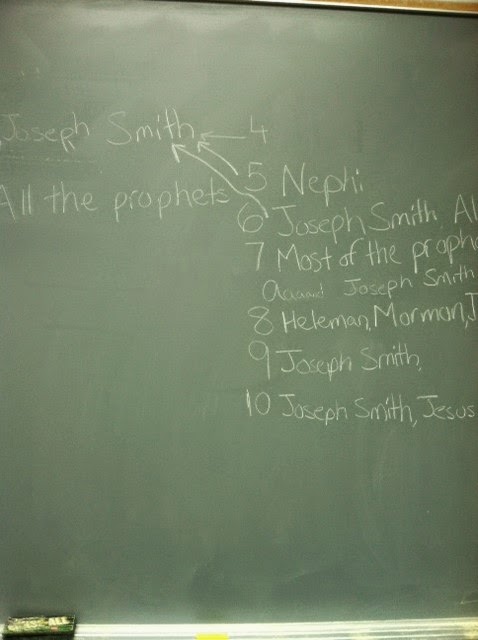 Joseph Smith 4
All the prophets
5 Nephi
6 Joseph Smith Al
7 Most of the prophe
Aaaand Joseph Smith
8 Heleman, Mormon, J
9 Joseph Smith,
10 Joseph Smith, Jesus